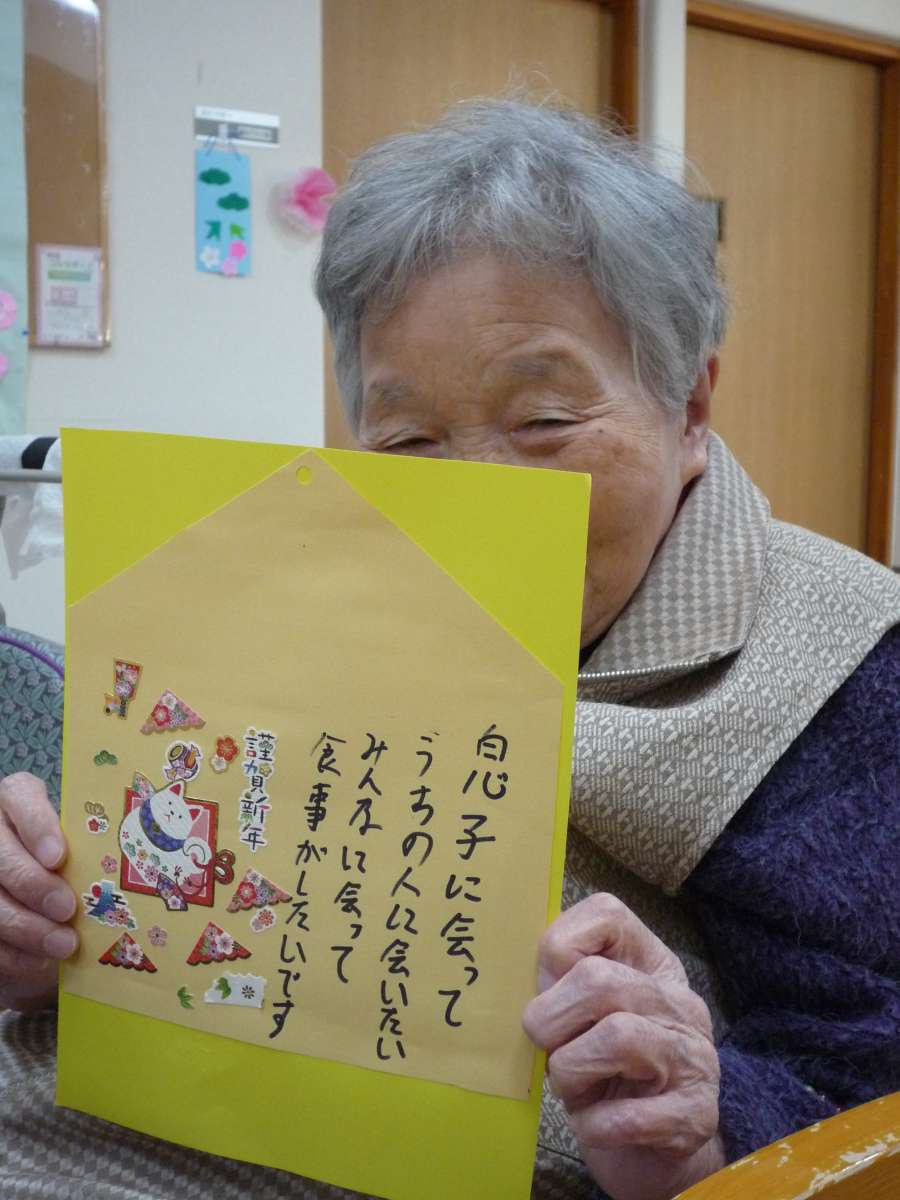 息子に会って
うちの人に会いたい
みんなに会って
食事がしたいです
謹賀新年